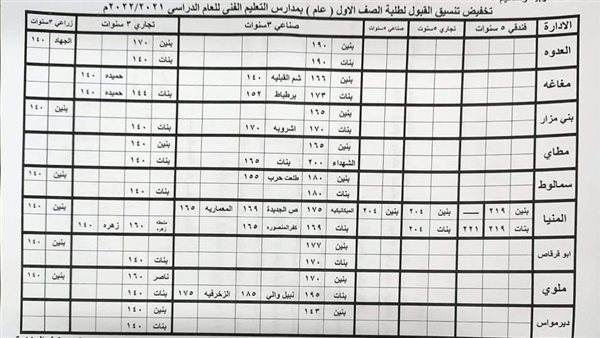 تخفيض تنسيق القبول لطلبة الصف الاول ( عام ) بمدارس التعليم الفنى للعام الدراسى ٢٠٢٢/٢٠٢١م
الادارة فندقي ٥ سنوات تجاري ٥سنوات صناعي ٥سنوات صناعي ٣سنوات تجاري ٣ سنوات زراعي ٣سنوات
العدوه بنين ١٩٠ بنين ١٧٠ الجهاد ١٤٠
بنات ١٩٠ بنات ١٤٠
مغاغه بنين ١٦٦ شم القبليه ١٤٠ حميده ١٤٠
بنات ١٧٣ برطباط ١٥٢ بنات ١٤٤ حميده ١٤٠
بني مزار بنين ١٦٥ بنين ١٤٠
بنات ١٧٠ اشروبه ١٧٠ بنات ١٤٠
مطاي بنين ١٤٠
الشهداء ٢٠٠ بنات ١٦٥ بنات ١٤٠
سمالوط بنين ١٨٠ طلعت حرب ١٥٥ بنين ١٤٠
بنات ١٨٠ بنات ١٤٠
المنيا بنين ٢١٩ بنين ٢٠٤ بنين ٢٠٤ الميكانيكيه ١٧٥ ص الجديدة ١٦٩ المعماريه ١٦٥ بنين ١٤٠
بنات ٢١٩ بنات ٢٢١ بنات ١٦٩ كفرالمنصوره ١٦٥ بنات ١٦٠ زهره ١٤٠
ابو قرقاص بنين ١٧٧
بنات ١٧٠ بنات ١٤٠
ملوي بنين ١٧٠ ناصر ١٦٠ بنين ١٤٠
بنات ١٩٥ نبيل والي ١٨٥ الزخرفيه ١٧٥ بنات ١٤٠
ديرمواس بنين ١٤٣ بنين ١٤٠
بنات ١٤٠